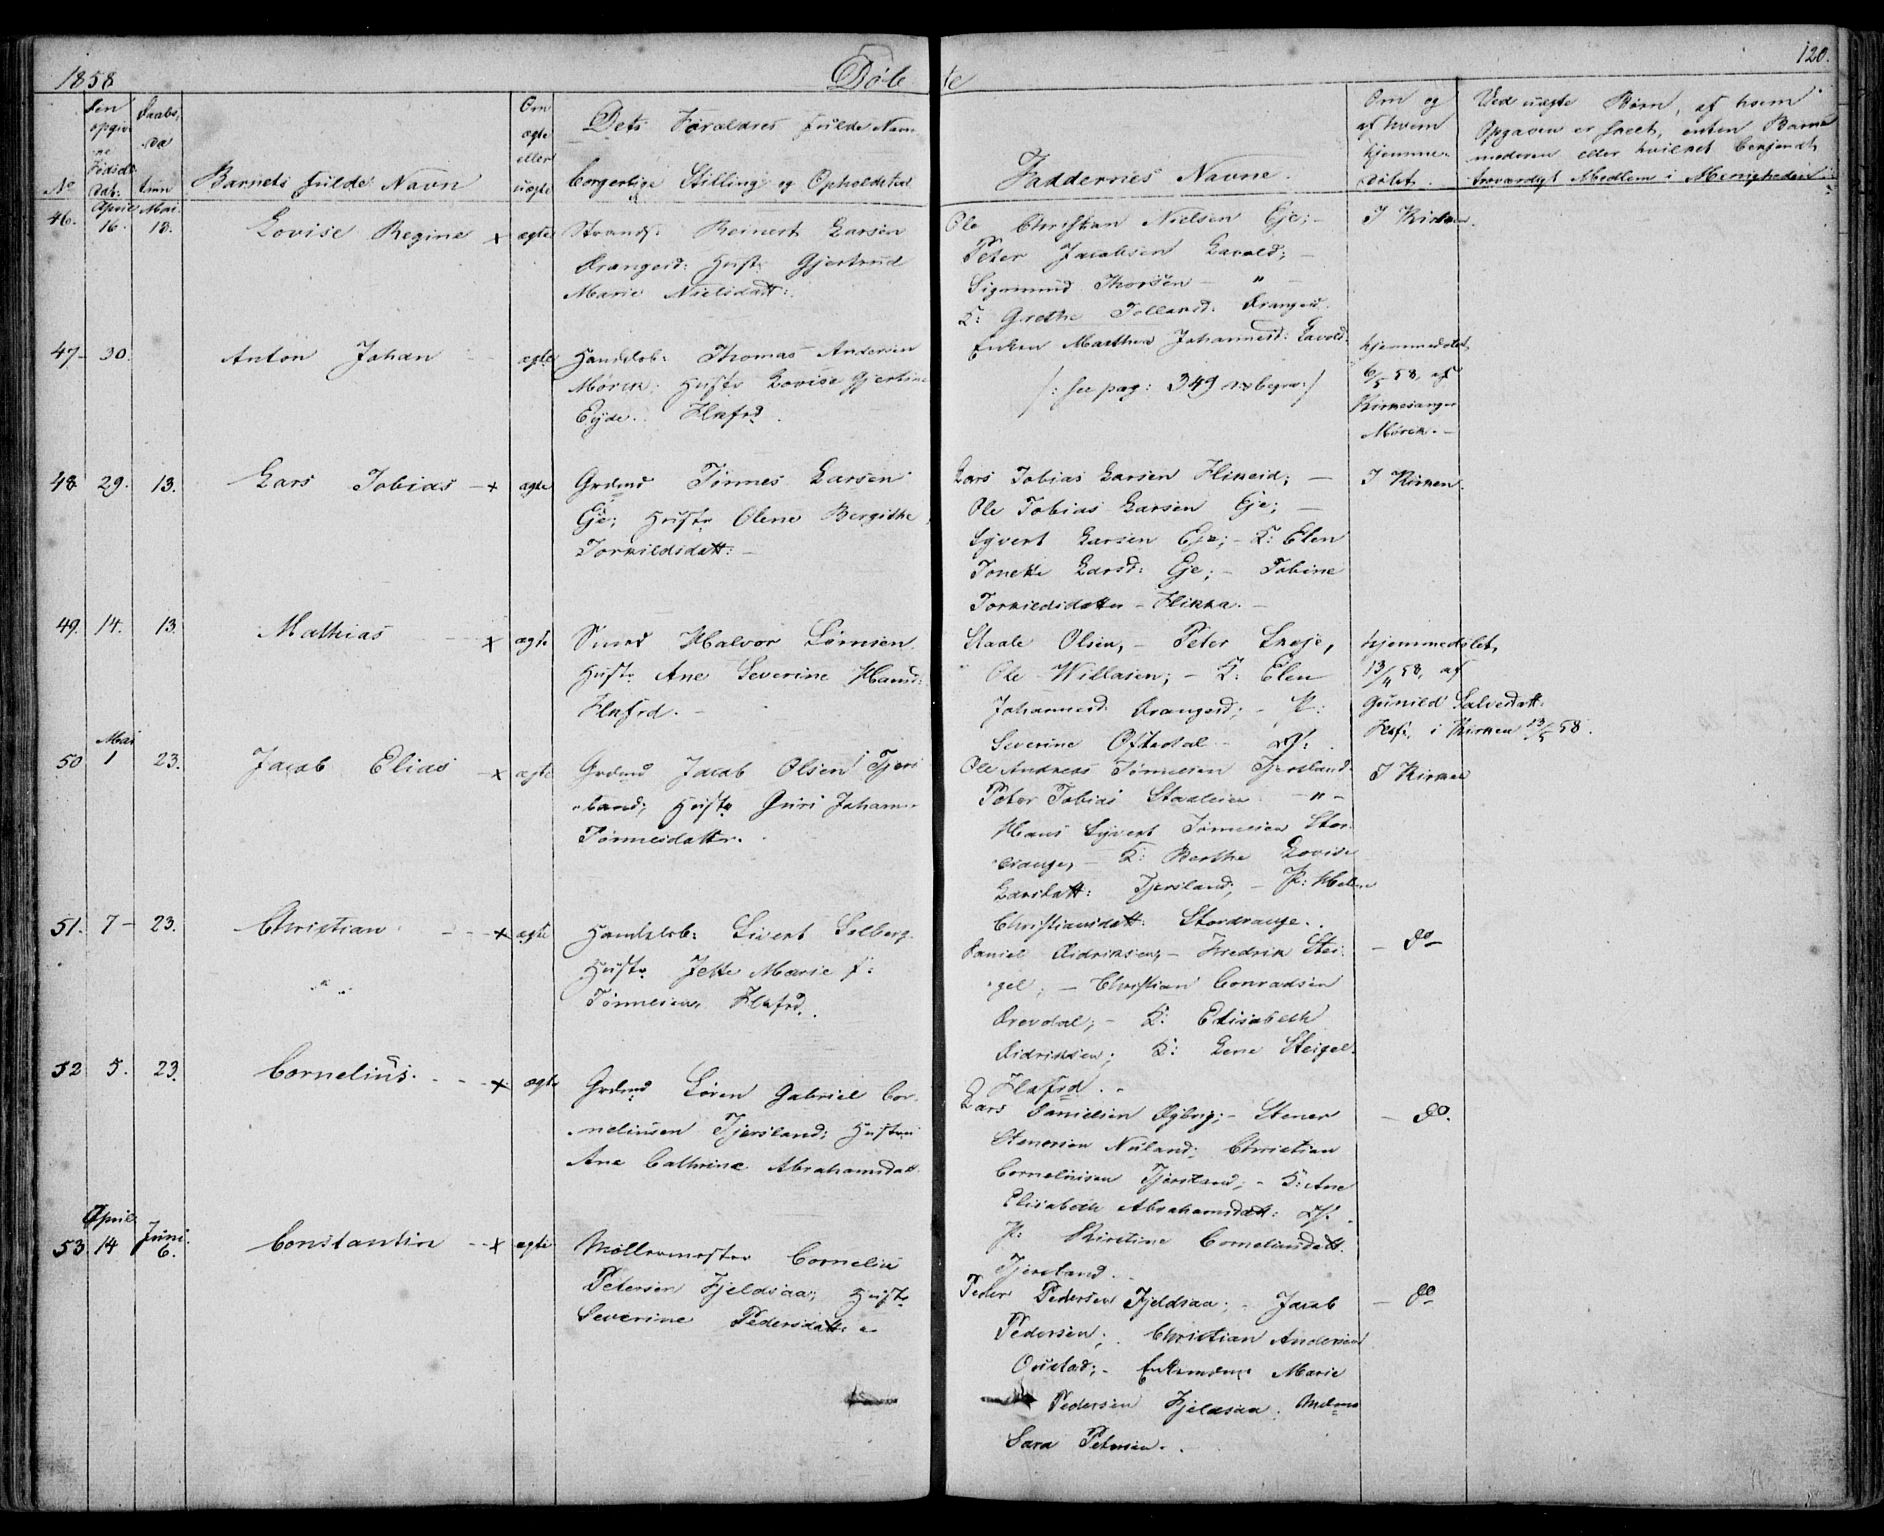 1858
Døbte
120.
No
Den opgivne Fødselsdat:
Daabs, datum
Barnets fulde Navn
Om ægte eller uægte
Dets Forældres fulde Navn
borgerlige Stilling og Opholdsted
Faddernes Navne.
Om og af hvem hjemmedøbt.
Ved uægte Børn, af hvem
Opgaven er skeet, enten Barne
moderen eller hvilket bekjendt,
troværdigt Medlem i Menigheden
46. April 16. Mai 13. Lovise Regine x ægte
Strands: Reinert Larsen
Drangeid: Hust: Gjertrud
Marie Nielsdatt:
Ole Christian Nielsen Eje; -
Peter Jacobsen Lavold; -
Sigmund Thorsen - " -
K: Grethe Tolland: Drangeid.
Enken Marthea Johannesd: Lavold.
I Kirken.
47- 30. Anton Johan ægte
Handelsb: Thomas Andersen
Mørch; Hustr Lovise Gjertine
Eyde. Flkfrd.
/: see pag: 349 begr: /
hjemmedøbt,
6/5 58, af
Kirkesanger
Mørch. -
48 29. 13. Lars Tobias - x ægte
Grdmd Tønnes Larsen
Eje; Hustr Olene Bergithe
Torkildsdatt: -
Lars Tobias Larsen Flikeid; -
Ole Tobias Larsen Eje; -
Syvert Larsen Eje; - K: Elen
Tonette Larsd: Eje; - Tobine
Torkildsdatter - Flikka. -
I Kirken.
49. 14. 13. Mathias x ægte
Smed Halvor Tømsen
Hustr Ane Severine Hansd:
Flkfrd. -
Staale Olsen, - Peter Skeje,
Ole Willasen; - K: Elen
Johannesd: Drangeid; - P:
Severine Oftedal -
hjemmedøbt,
13/4 58, af
Gunild Salvesdatt:
Flkf, i Kirken 13/5 58.
50 Mai 1 23. Jacob Elias - x ægte
Grdmd Jacob Olsen Tjørs
land; Hustr Guri Johanne
Tønnesdattr.
Ole Andreas Tønnesen Tjersland.
Peter Tobias Staalesen - " -
Hans Syvert Tønnesen Stor
drange, - K: Berthe Lovise
Larsdatt: Tjersland; - P: Helene
Christiansdatt: Stordrange.
I Kirken
51. 7- 23. Christian - - x ægte
Handelsb: Sivert Solberg.
Hustr Jette Marie f:
Tønnesen, Flkfrd.
Daniel Didriksen; - Fredrik Stei
gel; - Christian Conradsen
Drevdal; - K: Elisabeth
Didriksen; K: Lene Steigel.
Flkfrd. -
- do -
52 5. 23. Cornelius. - - - x ægte
Grdmd Søren Gabriel Cor
neliusen Tjersland; Hustru
Ane Cathrine Abrahamsdatt
Lars Danielsen Nyborg; - Stener
Stenersen Nuland; Christian
Corneliusen Tjersland; - K: Ane
Elisabeth Abrahamsdatt:
P: Kirstine Corneliusdatt.
Tjersland. -
- do.
53 April 14 Juni 6. Constantin - - x ægte
Møllermester Cornelius
Petersen Fjeldsaa; Hustr
Severine Pedersdatt: -
Peder Pedersen Fjeldsaa; - Jacob
Pedersen; Christian Andersen
Oustad; - Enkemdme Marie
Pedersen Fjeldsaa;
Sara Petersen. -
- do -